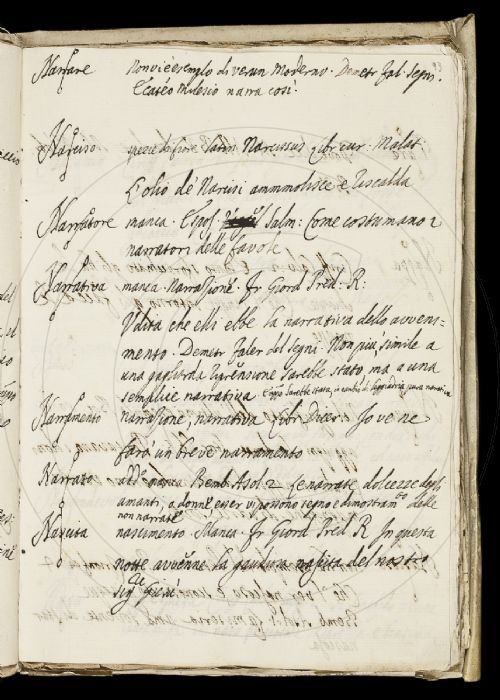 Narrare   Non vi è esemplo di verun Moderno. Demetr Fal. Segni.
Ecateo Milesio narra così.
Narciso   spezie di fiore latin Narcissus libr cur. Malat:
L'olio de Narcisi ammmolisce e riscalda
Narratore   manca. Espos: Salm: Come costumano i
narratori delle favole
Narrativa   manca. Narrazione. Fr Giord Pred: R:
Udita che elli ebbe la narrativa dello avveni-
mento. Demetr Faler del Segni. Non più simile a
una gagliarda riprensione sarebbe stato, ma a una
semplice narrativa
Narramento   narrazione, narrativa libr Dicer: Io ve ne
farò un breve narramento
Narrato   add: manca Bemb Asol 2 le narrate dolcezze degli
amanti, o donne esser vi possono segno e dimostram.to delle
non narrate
Nascita   nascimento. Manca. Fr Giord Pred R In questa
notte avvenne la gaudiura nascita del nostro
Sig.re Giesù